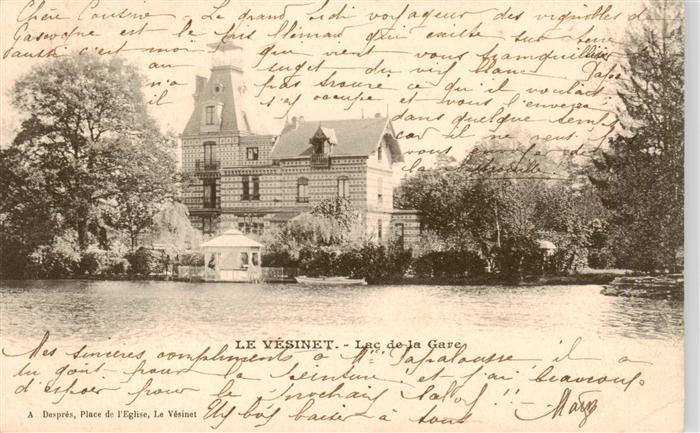 Chère Cousine, Le grand Sedi voyageur des vignobles de
Gascogne est le plus menteur que existe sur terre
c'est moi qui vient vous tranquilliser
au sujet du vin blanc Papa
n'a pas trouvé ce qu'il voulait
il s'en occupe et vous l'enverra
dans quelque temps
car il ne veut
vous
LE VÉSINET. - Lac de la Gare
Mes sincères compliments à Mr Lapalousse il a
du goût pour la peinture et j'ai beaucoup
d'espoir pour le prochain Salon !!
Un bos baiser à tous
A Després, Place de l'Eglise, Le Vésinet